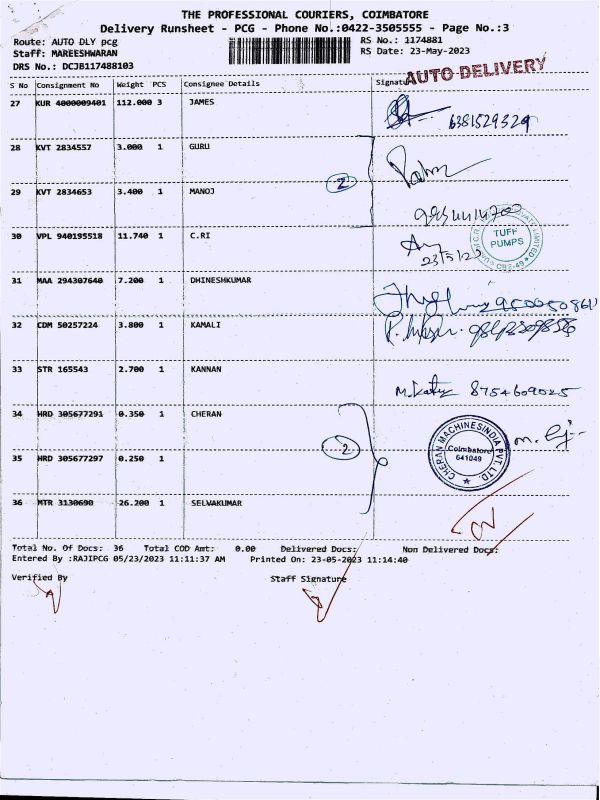 THE PROFESSIONAL COURIERS, COIMBATORE
Delivery Runsheet - PCG - Phone No.:0422-3505555 - Page No.:3
Route: AUTO DLY pcg RS No.: 1174881
Staff: MAREESHWARAN RS Date: 23-May-2023
DRS No.: DCJB117488103
AUTO DELIVERY
S No Consignment No Weight PCS Consignee Details Signature
27 KUR 4000009401 112.000 3 JAMES
6381529329
28 KVT 2834557 3.000 1 GURU
2
29 KVT 2834653 3.400 1 MANOJ
30 VPL 940195518 11.740 1 C.RI
TUFF
PUMPS
23/5/23
31 MAA 294307640 7.200 1 DHINESHKUMAR
32 CDM 50257224 3.800 1 KAMALI
33 STR 165543 2.700 1 KANNAN
8754609025
34 HRD 305677291 0.350 1 CHERAN
CHERAN MACHINES INDIA PVT. LTD.
Coimbatore
641049
2
35 HRD 305677297 0.250 1
36 MTR 3130690 26.200 1 SELVAKUMAR
Total No. Of Docs: 36 Total COD Amt: 0.00 Delivered Docs: Non Delivered Docs:
Entered By :RAJIPCG 05/23/2023 11:11:37 AM Printed On: 23-05-2023 11:14:40
Verified By Staff Signature